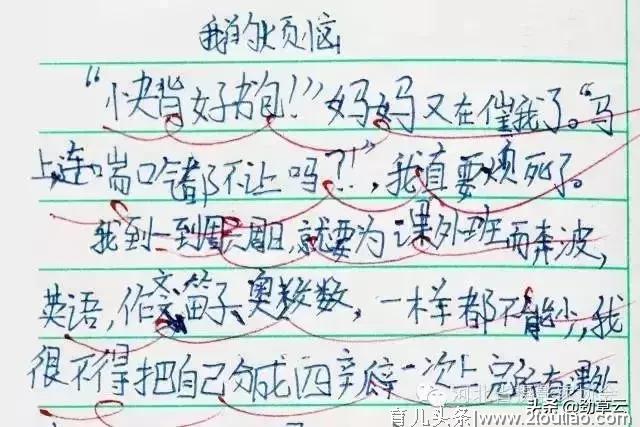 我的烦恼
“快背好书包!”妈妈又在催我了。“马
上,连喘口气都不让吗?!”,我真要烦死了。
我到一到周六周日,就要为课外班而奔波,
英语,作文、笛子、奥数,一样都不能少,我
很不得把自己分成四个,一次上完所有课外
头条@劲草云
育儿头条 www.21ouliao.com